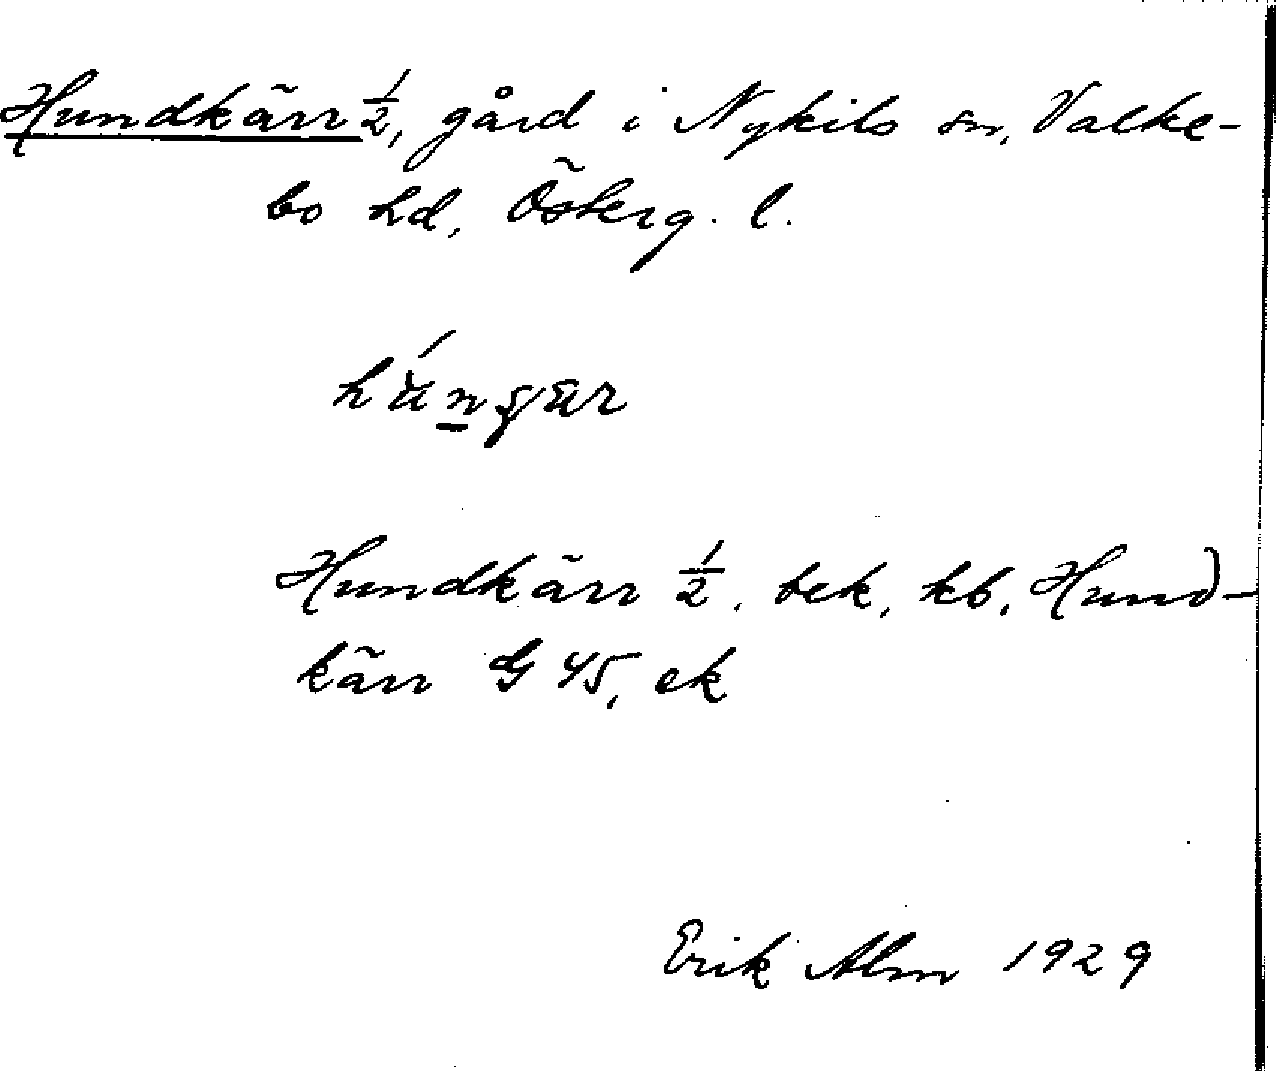 Hundkärr 1/2, gård i Nykils sn, Valke-
bo hd, Österg. l.
Hundkärr 1/2, bek, kb, Hund-
kärr G 45, ek
Erik Alm 1929